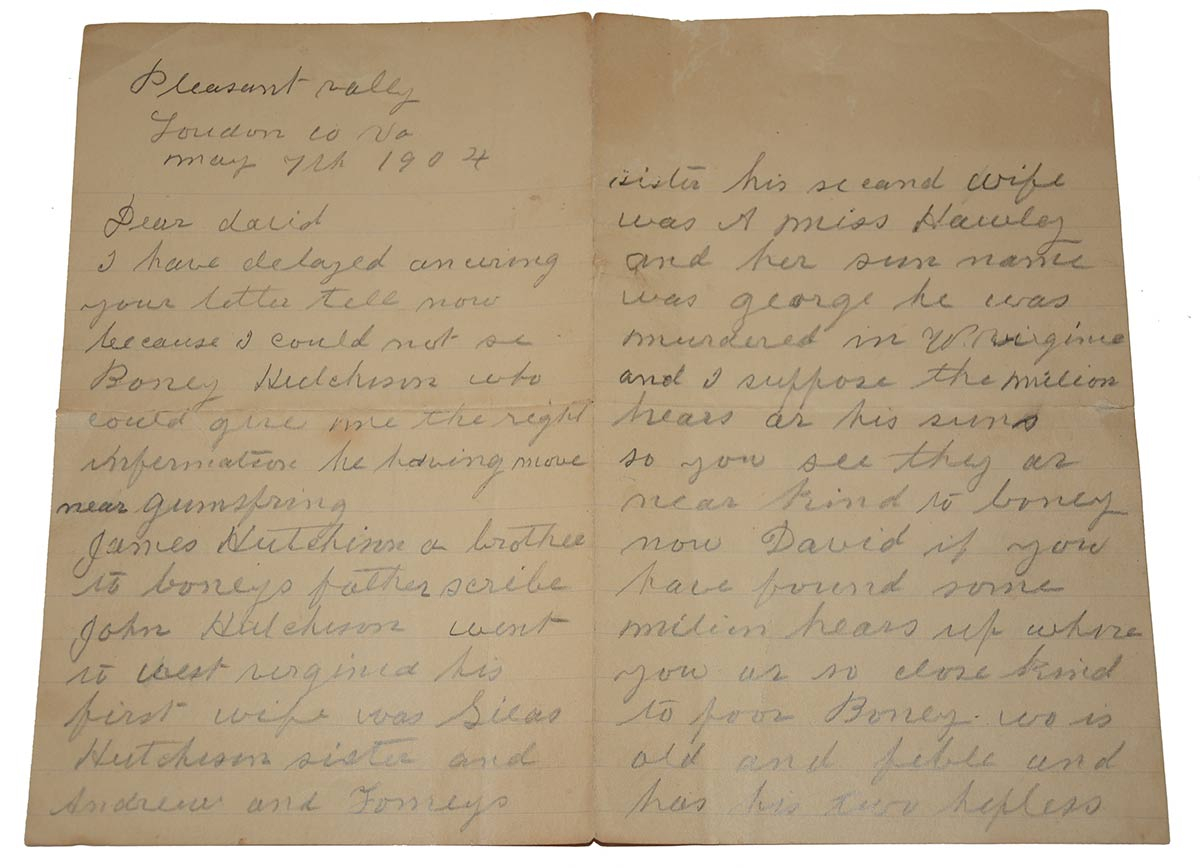 Pleasant vally
Loudon co Va
may 7th 1904
Dear david
I have delayed ancuring
your letter tell now
because I could not se
Boney Hutchison who
could give me the right
infermation he having move
near gumspring
James Hutchison a brother
to boneys father scribe
John Hutchison went
to west verginia his
first wife was Silas
Hutchison sister and
Andrew and Tomeys
sister his secand wife
was A miss Hawley
and her sun name
was george he was
murdered in W. virginia
and I suppose the milion
hears ar his suns
so you see they ar
near kind to boney
now David if you
have found some
milion hears up whare
you ar so close kind
to poor Boney wo is
old and feble and
has his two hepless